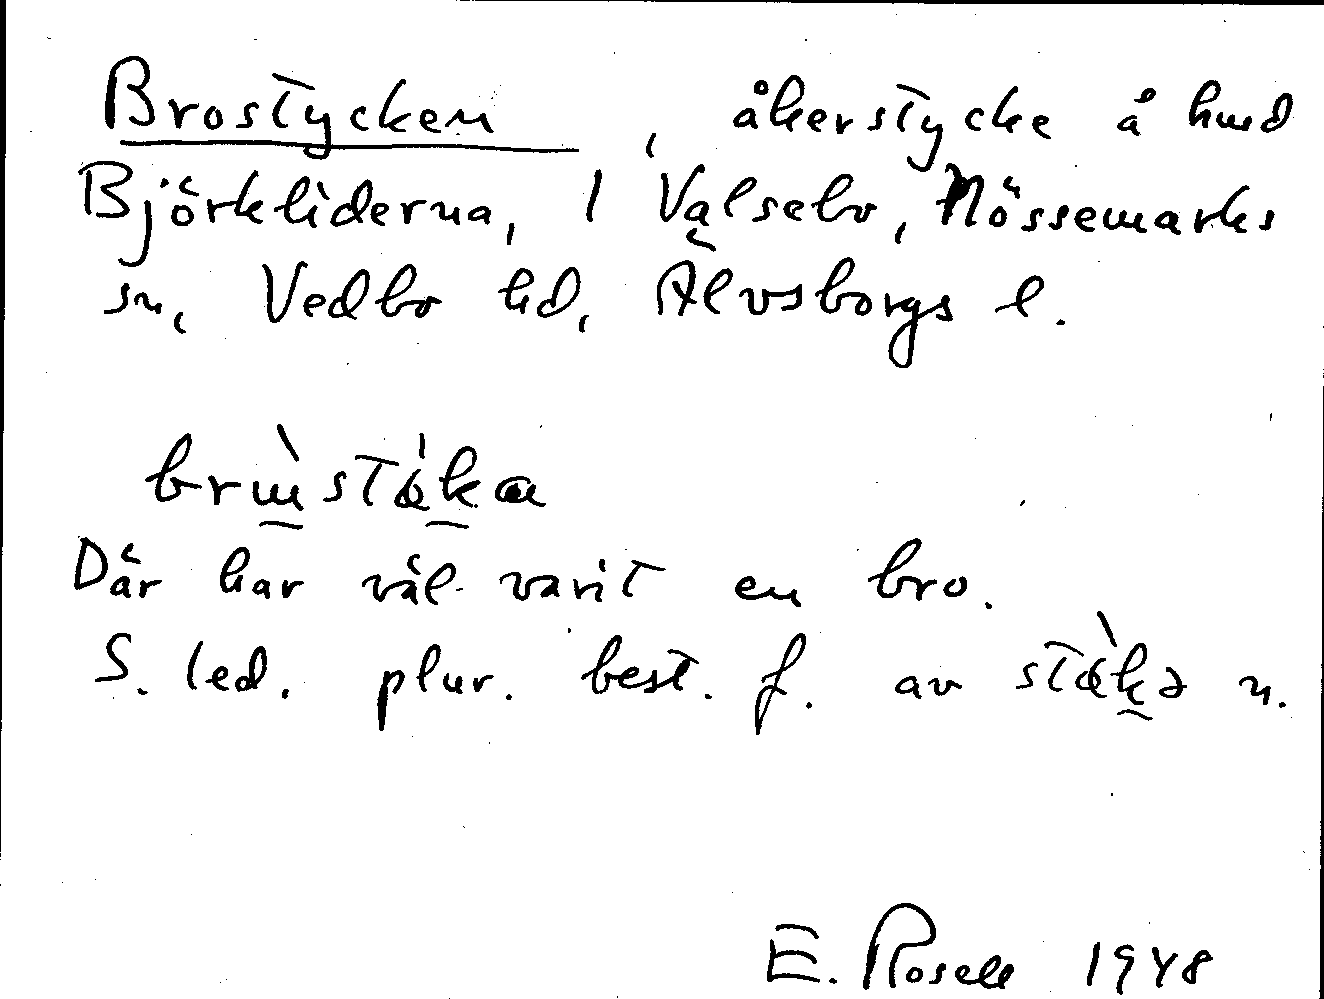 Brostycken, åkerstycke å hmd
Björkliderna, 1 Valsebo, Nössemarks
sn, Vedbo hd, Älvsborgs l.
brùstákα
Där har väl varit en bro.
S. led. plur. best. f. av stàkə n.
E. Rosell 1948